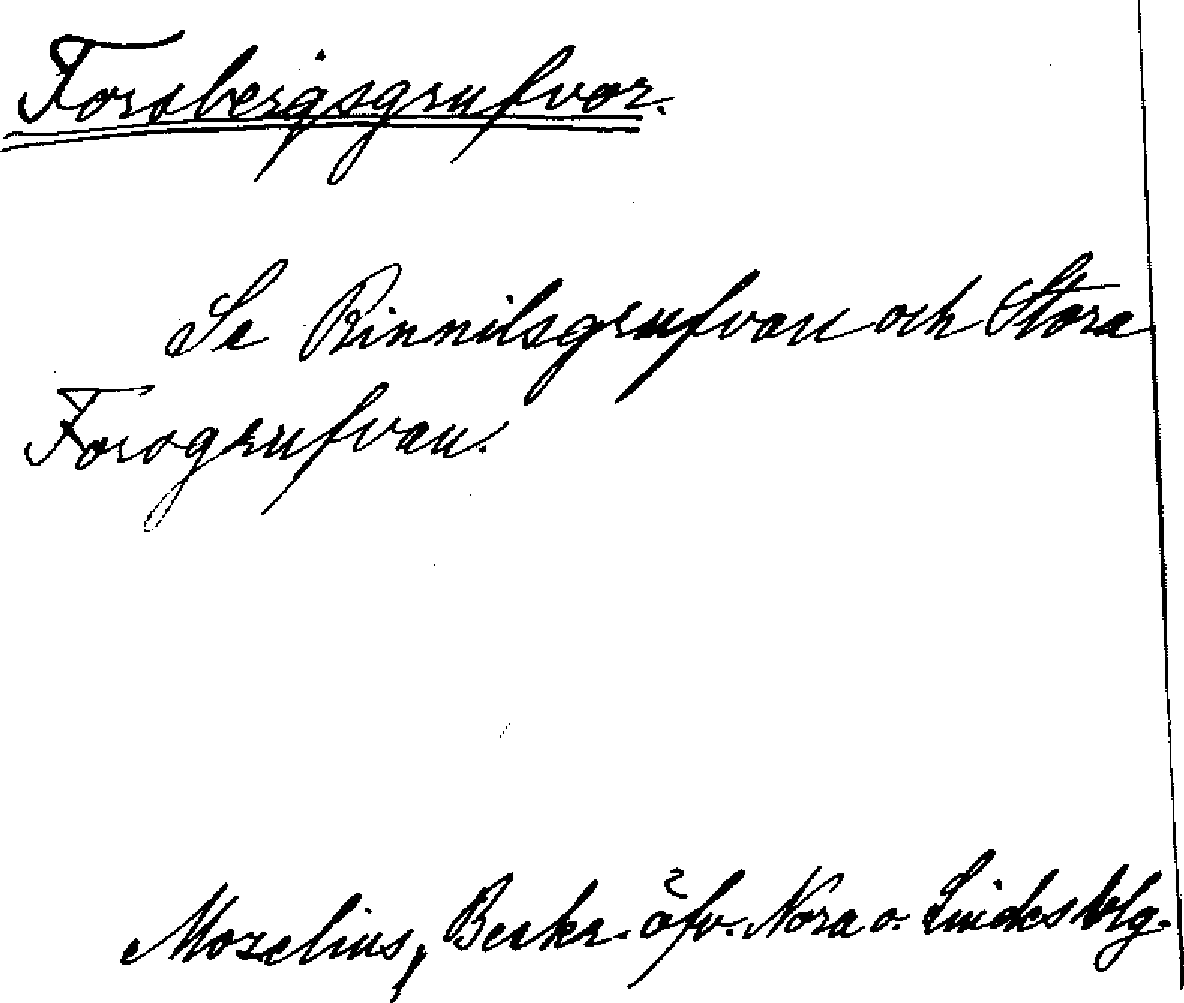 Forsbergsgrufvor.
Se Rinnilsgrufvan och Stora
Forsgrufvan.
Mozelius, Beskr. öfv. Nora o. Lindes blg.